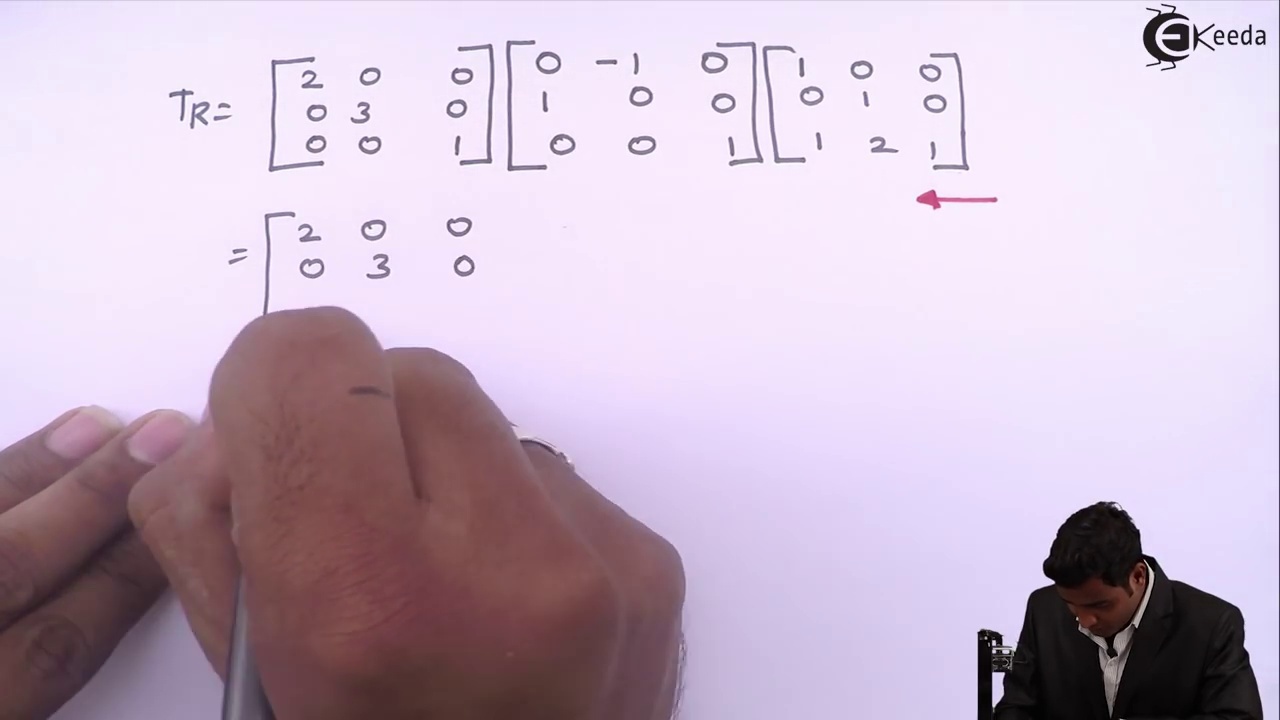 EKeeda
TR= [2 0 0] [0 -1 0] [1 0 0]
[0 3 0] [1 0 0] [0 1 0]
[0 0 1] [0 0 1] [1 2 1]
= [2 0 0
0 3 0